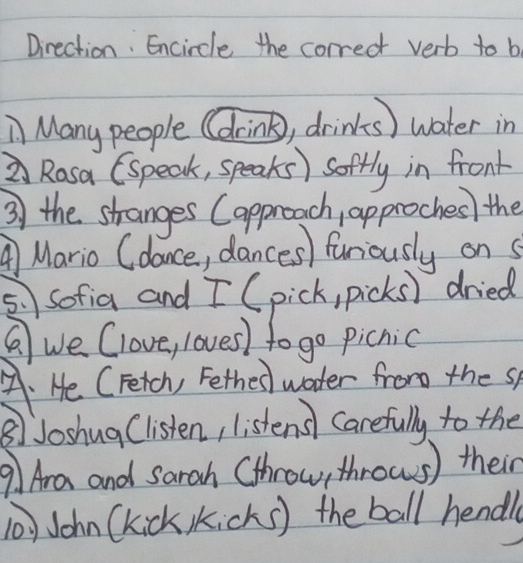 Direction: Encircle the correct verb to b
1) Many people (drink, drinks) water in
2) Rosa (speak, speaks) softly in front
3.) the stranges (approach, approches) the
4) Mario (dance, dances) furiously on s
5.) Sofia and I (pick, picks) dried
6.) we (love, loves) to go picnic
7). He (Fetch, Fethes) water from the sp
8) Joshua (listen, listens) carefully to the
9.) Ara and Sarah (throw, throws) their
10.) John (kick, kicks) the ball hendly